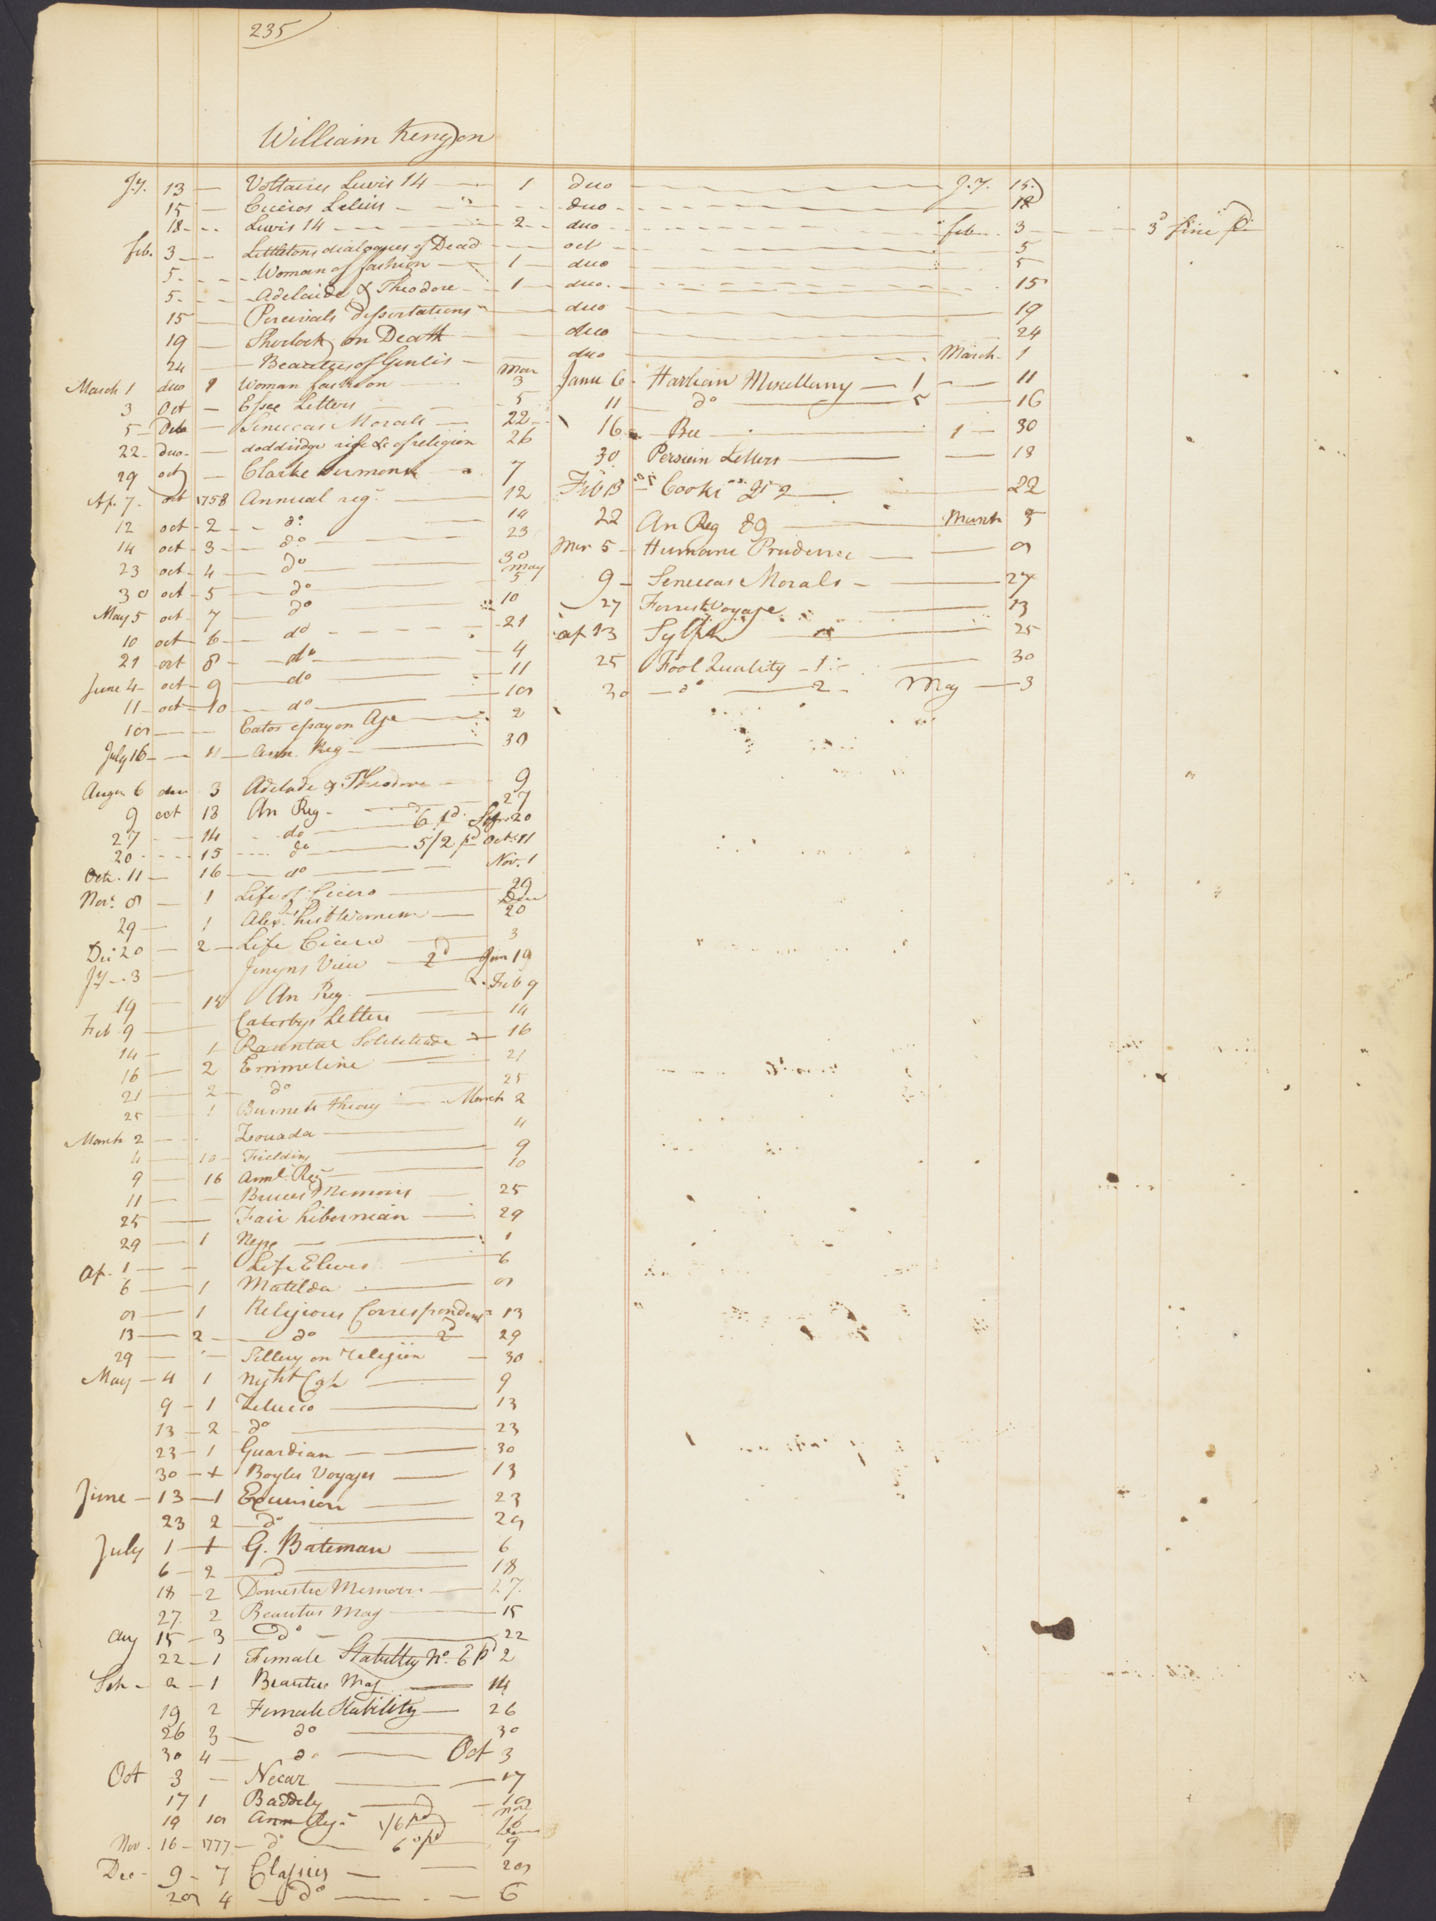 235
William Kenyon
Jy. 13 — Voltaires Lewis 14 — 1 duo — Jy. 15
15 — Ciceros Lelius — duo — 18
18 — Lewis 14 — 2 — duo — feb. 3 — 3d fine pd
feb. 3 — Littletons dialogues of Dead — oct — 5
5 — Woman of fashion — 1 — duo — 5
5 — Adelaide & Theodore — 1 — duo — 15
15 — Percivals dissertations — duo — 19
19 — Sherlock on Death — duo — 24
24 — Beauties of Genlis — duo — March 1
March 1 duo 2 Woman fashion — Mar 3
3 Oct — Essee Letters — 5
5 — Duo — Seneccas Morals — 22
22 — duo — doddridge rise &c of religion 26
29 oct — Clarke sermons 7
Ap. 7 oct 1758 Annual reg — 12
12 oct 2 — do — 14
14 oct 3 — do — 23
23 oct 4 — do — 30
30 oct 5 — do — May 5
May 5 oct 7 — do — 10
10 oct 6 — do — 21
21 oct 8 — do — 4
June 4 oct 9 — do — 11
11 oct 10 — do — 18
18 — Catos essay on Age — 2
July 16 — 11 — Ann. Reg — 30
Augu 6 duo 3 Adelade & Theodore — 9
9 oct 13 An Reg — 27
27 — 14 — do — 6 pd Sep 20
20 — 15 — do — 5/2 pd Oct 11
Octr. 11 — 16 — do — Nov. 1
Nov. 8 — 1 Life of Cicero — 29
29 — 1 Alexrs hist Women — Dec 20
Dec 20 — 2 — Life Cicero — 3
Jy 3 — Jenyns View — 2d Jan 19
19 — 18 An Reg. — Feb 9
Feb 9 — Catesbys Letters — 14
14 — 1 Racuntal Solitetude — 16
16 — 2 Emmeline — 21
21 — 2 — do — 25
25 — 1 Burnets theory — March 2
March 2 — Louada — 4
4 — 10 — Fielding — 9
9 — 16 Annl. Reg — 10
11 — Bruces Memoirs — 25
25 — Fair hibernian — 29
29 — 1 — 1
Ap. 1 — Life Elwes — 6
6 — 1 Matilda — 8
8 — 1 Religious Correspondent 13
13 — 2 — do — 2d 29
29 — Sillery on religion — 30
May — 4 1 Night Cap — 9
9 — 1 Zelucco — 13
13 — 2 — do — 23
23 — 1 Guardian — 30
30 — + Boyles Voyages — 13
June — 13 — 1 Excursion — 23
23 2 — do — 29
July 1 — + G. Bateman — 6
6 — 2 — do — 18
18 — 2 Domestic Memoirs — 27
27 2 Beauties Mag — 15
Aug 15 — 3 — do — 22
22 — 1 Female Stability No. 6 pd 2
Sep — 2 — 1 Beauties Mag — 14
19 2 Female Stability — 26
26 3 — do — 30
30 4 — do — Oct 3
Oct 3 — Necar — 17
17 1 Baddely — 19
19 18 Ann Reg — 1/6 pd Nov 16
Nov. 16 — 1777 — do — 6 pd 9
Dec — 9 — 7 Classics — 28
28 4 — do — 6
Janu 6 — Harlean Miscellany — 1 — 11
11 — do — 5 — 16
16 — Bee — 1 — 30
30 Persian Letters — 18
Feb 18 — Cooks — 2 — 22
22 An Reg 89 — March 5
Mar 5 — Humane Prudence — 9
9 — Seneccas Morals — 27
27 Forrest Voyage — 13
Ap 13 Sylph — 25
25 Fool Quality — 1 — 30
30 — do — 2 — May — 3